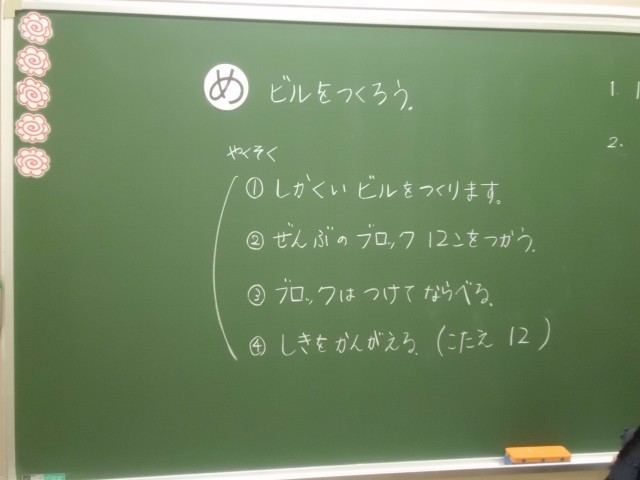 め ビルをつくろう。
やくそく
① しかくい ビルをつくります。
② ぜんぶの ブロック 12こをつかう。
③ ブロックは つけて ならべる。
④ しきを かんがえる。(こたえ 12)
1.
2.